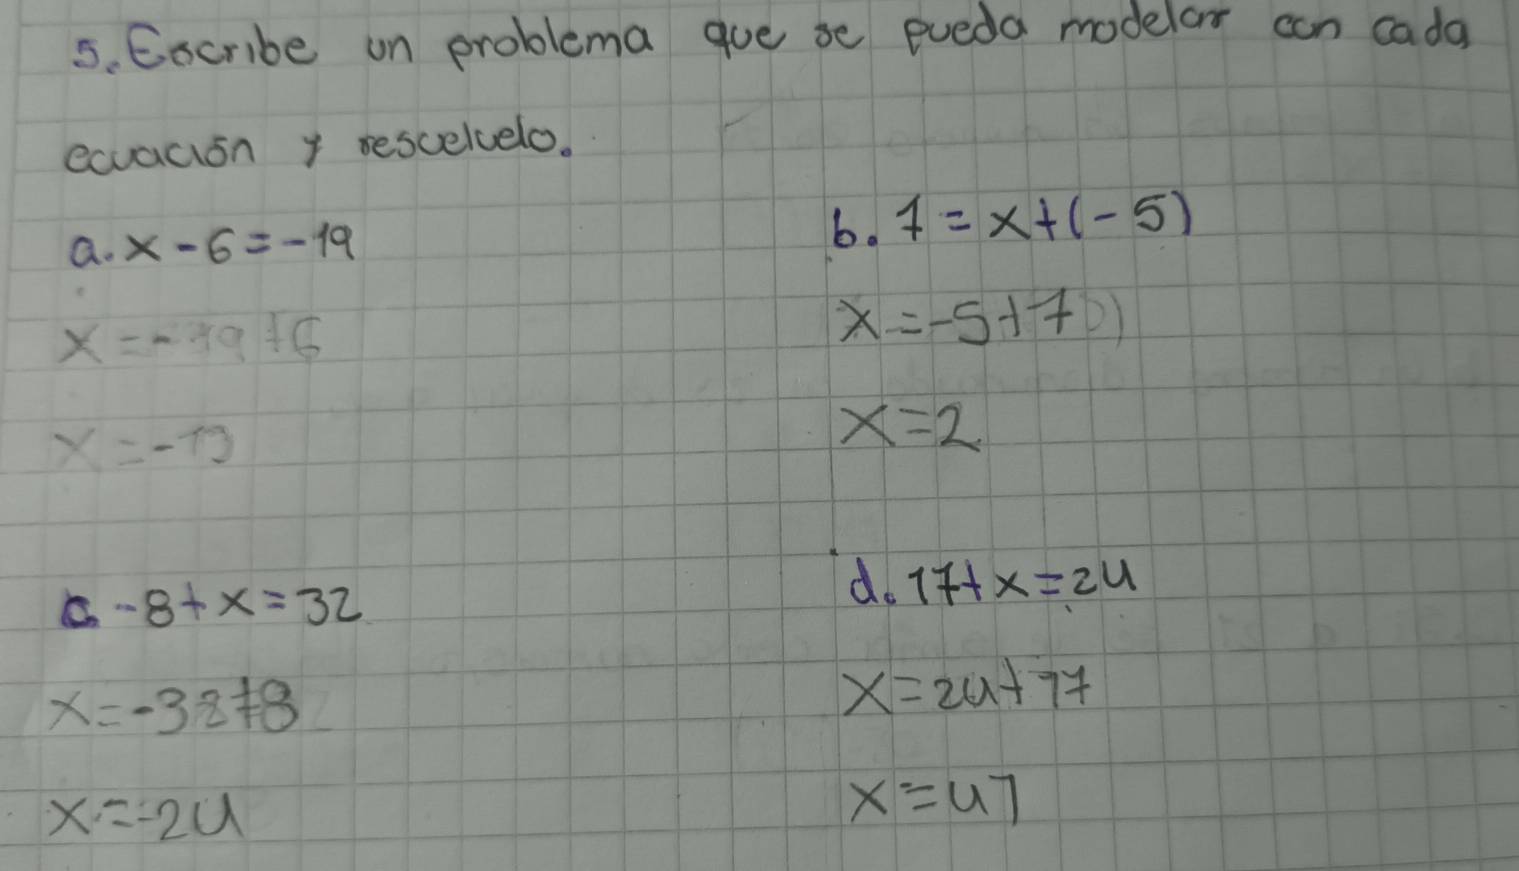 5. Escribe un problema que se pueda modelar con cada
ecuación y resuelvelo.
a. x - 6 = -19
x = -19 + 6
x = -13
b. 7 = x + (-5)
x = -5 + 7
x = 2
c. -8 + x = 32
x = -32 + 8
x = -24
d. 17 + x = 24
x = 24 + 17
x = 41